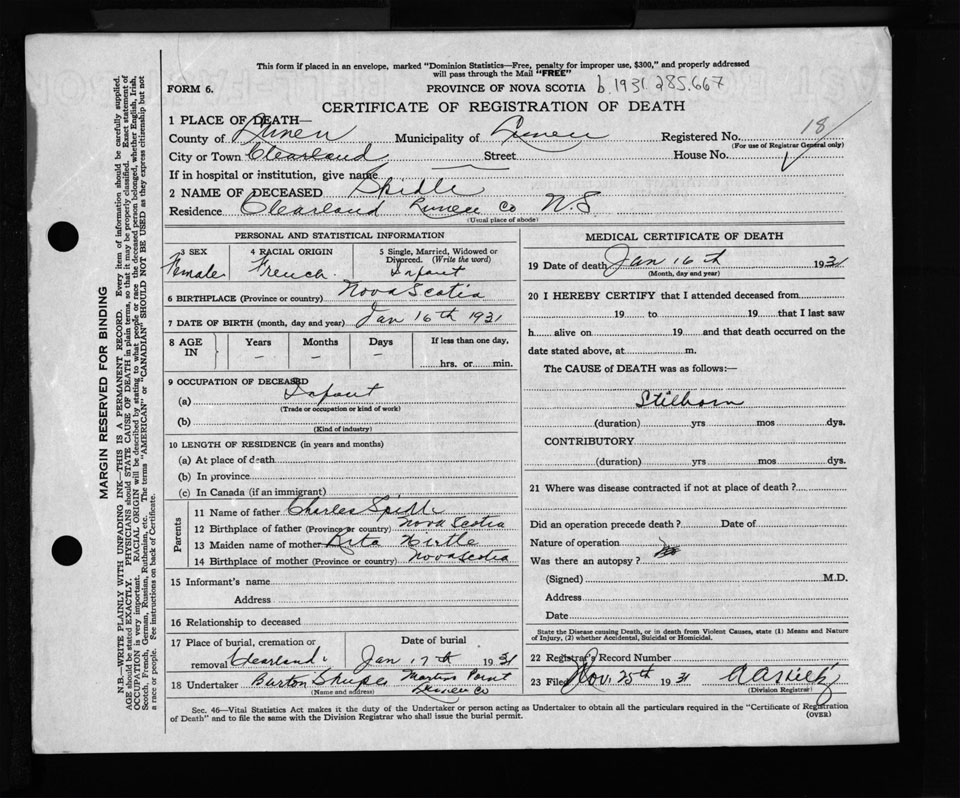 This form if placed in an envelope, marked "Dominion Statistics—Free, penalty for improper use, $300," and properly addressed
will pass through the Mail "FREE"
FORM 6. PROVINCE OF NOVA SCOTIA b.1931.285.667
CERTIFICATE OF REGISTRATION OF DEATH
1 PLACE OF DEATH—
County of Lunen Municipality of Lunen Registered No. 18
(For use of Registrar General only)
City or Town Clearland Street House No.
If in hospital or institution, give name
2 NAME OF DECEASED Spidle
Residence Clearland Lunen Co N.S.
(Usual place of abode)
PERSONAL AND STATISTICAL INFORMATION
3 SEX 4 RACIAL ORIGIN 5 Single, Married, Widowed or Divorced. (Write the word)
Female French. Infant
6 BIRTHPLACE (Province or country) Nova Scotia
7 DATE OF BIRTH (month, day and year) Jan 16th 1931
8 AGE IN Years Months Days If less than one day,
– – – hrs. or min.
9 OCCUPATION OF DECEASED
(a) Infant
(Trade or occupation or kind of work)
(b)
(Kind of industry)
10 LENGTH OF RESIDENCE (in years and months)
(a) At place of death
(b) In province
(c) In Canada (if an immigrant)
Parents
11 Name of father Charles Spidle
12 Birthplace of father (Province or country) Nova Scotia
13 Maiden name of mother Rita Hirtle
14 Birthplace of mother (Province or country) Nova Scotia
15 Informant's name
Address
16 Relationship to deceased
17 Place of burial, cremation or Date of burial
removal Clearland Jan 17th 1931
18 Undertaker Burton Martins Point
(Name and address) Lunen Co
MEDICAL CERTIFICATE OF DEATH
19 Date of death Jan 16th 1931
(Month, day and year)
20 I HEREBY CERTIFY that I attended deceased from
19 to 19 that I last saw
h alive on 19 and that death occurred on
date stated above, at m.
The CAUSE of DEATH was as follows:—
Stilborn
(duration) yrs mos dys.
CONTRIBUTORY
(duration) yrs mos dys.
21 Where was disease contracted if not at place of death?
Did an operation precede death? Date of
Nature of operation
Was there an autopsy?
(Signed) M.D.
Address
Date
State the Disease causing Death, or in death from Violent Causes, state (1) Means and Nature
of Injury, (2) whether Accidental, Suicidal or Homicidal.
22 Registrar's Record Number
23 Filed Nov. 25th 1931
(Division Registrar)
Sec. 46—Vital Statistics Act makes it the duty of the Undertaker or person acting as Undertaker to obtain all the particulars required in the "Certificate of Registration
of Death" and to file the same with the Division Registrar who shall issue the burial permit. (OVER)
MARGIN RESERVED FOR BINDING
N.B.—WRITE PLAINLY WITH UNFADING INK—THIS IS A PERMANENT RECORD. Every item of information should be carefully supplied.
AGE should be stated EXACTLY. PHYSICIANS should STATE CAUSE OF DEATH in plain terms, so that it may be properly classified. Exact statement of
OCCUPATION is very important. RACIAL ORIGIN will be described by stating to what people or race the deceased person belonged, whether English, Irish,
Scotch, French, German, Russian, Ruthenian, etc. The terms "AMERICAN" or "CANADIAN" SHOULD NOT BE USED as they express citizenship but not
a race or people. See instructions on back of Certificate.